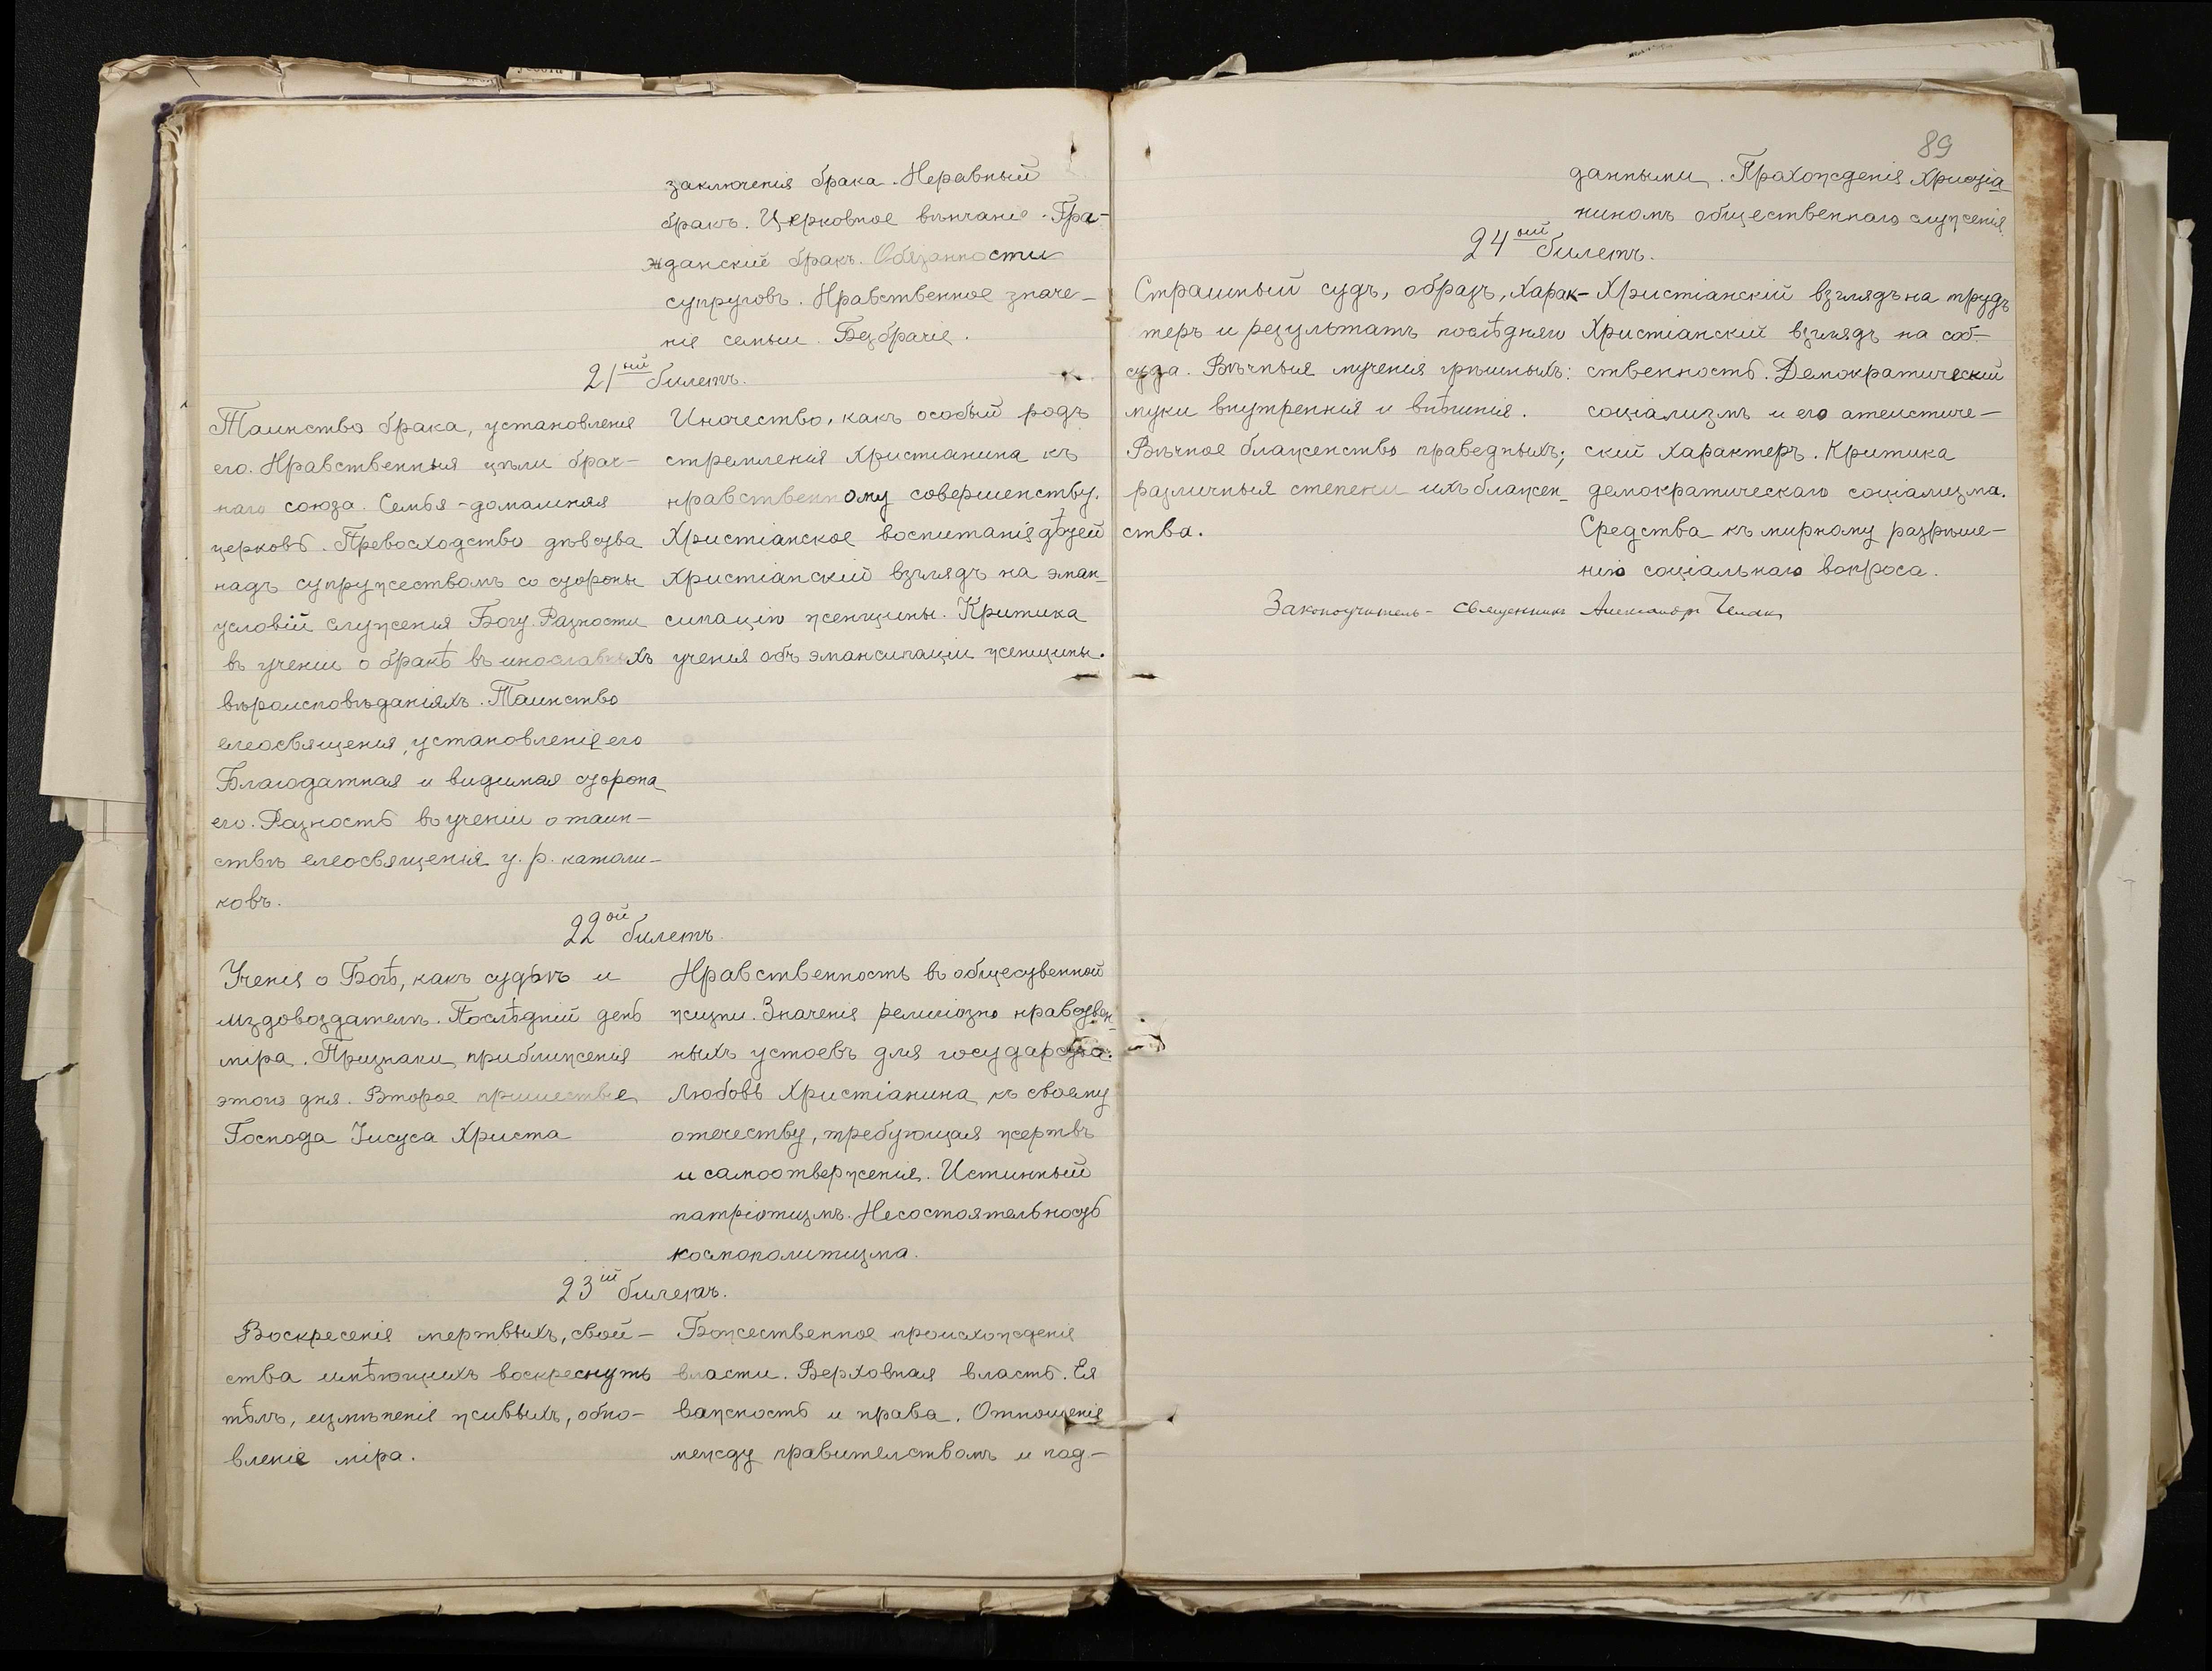 заключенія брака. Неравный
бракъ. Церковное вѣнчаніе. Гра-
жданскій бракъ. Обязанности
супруговъ. Нравственное значе-
ніе семьи. Безбрачіе.
21ый билетъ.
Таинство брака, установленія
его. Нравственныя цѣли брач-
наго союза. Семья - домашняя
церковь. Превосходство дѣвства
надъ супружествомъ со стороны
условій служенія Богу. Разности
въ ученіи о бракѣ въ инославныхъ
вѣроисповѣданіяхъ. Таинство
елеосвященія, установленіе его
Благодатная и видимая сторона
его. Разность въ ученіи о таин-
ствѣ елеосвященія у р. католи-
ковъ.
Иночество, какъ особый родъ
стремленія христіанина къ
нравственному совершенству.
Христіанское воспитанія дѣтей
Христіанскій взглядъ на эман-
сипацію женщины. Критика
ученія объ эмансипаціи женщины.
22ой билетъ.
Ученія о Богѣ, какъ судьѣ и
мздовоздателѣ. Послѣдній день
міра. Признаки приближенія
этого дня. Второе пришествіе
Господа Іисуса Христа
Нравственность въ общественной
жизни. Значенія религіозно нравствен-
ныхъ устоевъ для государства.
Любовь Христіанина къ своему
отечеству, требующая жертвъ
и самоотверженія. Истинный
патріотизмъ. Несостоятельность
космополитизма.
23ій билетъ.
Воскресенія мертвыхъ, свой-
ства имѣющихъ воскреснуть
тѣлъ, измѣненіе живыхъ, обно-
вленіе міра.
Божественное происхожденія
власти. Верховная власть. Ея
важность и права. Отношенія
между правителствомъ и под-
89
данными. Прахожденія Христіа
ниномъ общественнаго служенія
24ый билетъ.
Страшный судъ, образъ, харак-
теръ и результатъ послѣдняго
суда. Вѣчныя мученія грѣшныхъ:
муки внутреннія и внѣшнія.
Вѣчное блаженство праведныхъ;
различныя степени ихъ блажен-
ства.
Христіанскій взглядъ на трудъ
Христіанскій взглядъ на соб-
ственность. Демократическій
соціализмъ и его атеистиче-
скій характеръ. Критика
демократическаго соціализма.
Средства къ мирному разрѣше-
нію соціальнаго вопроса.
Законоучитель - священникъ Александръ